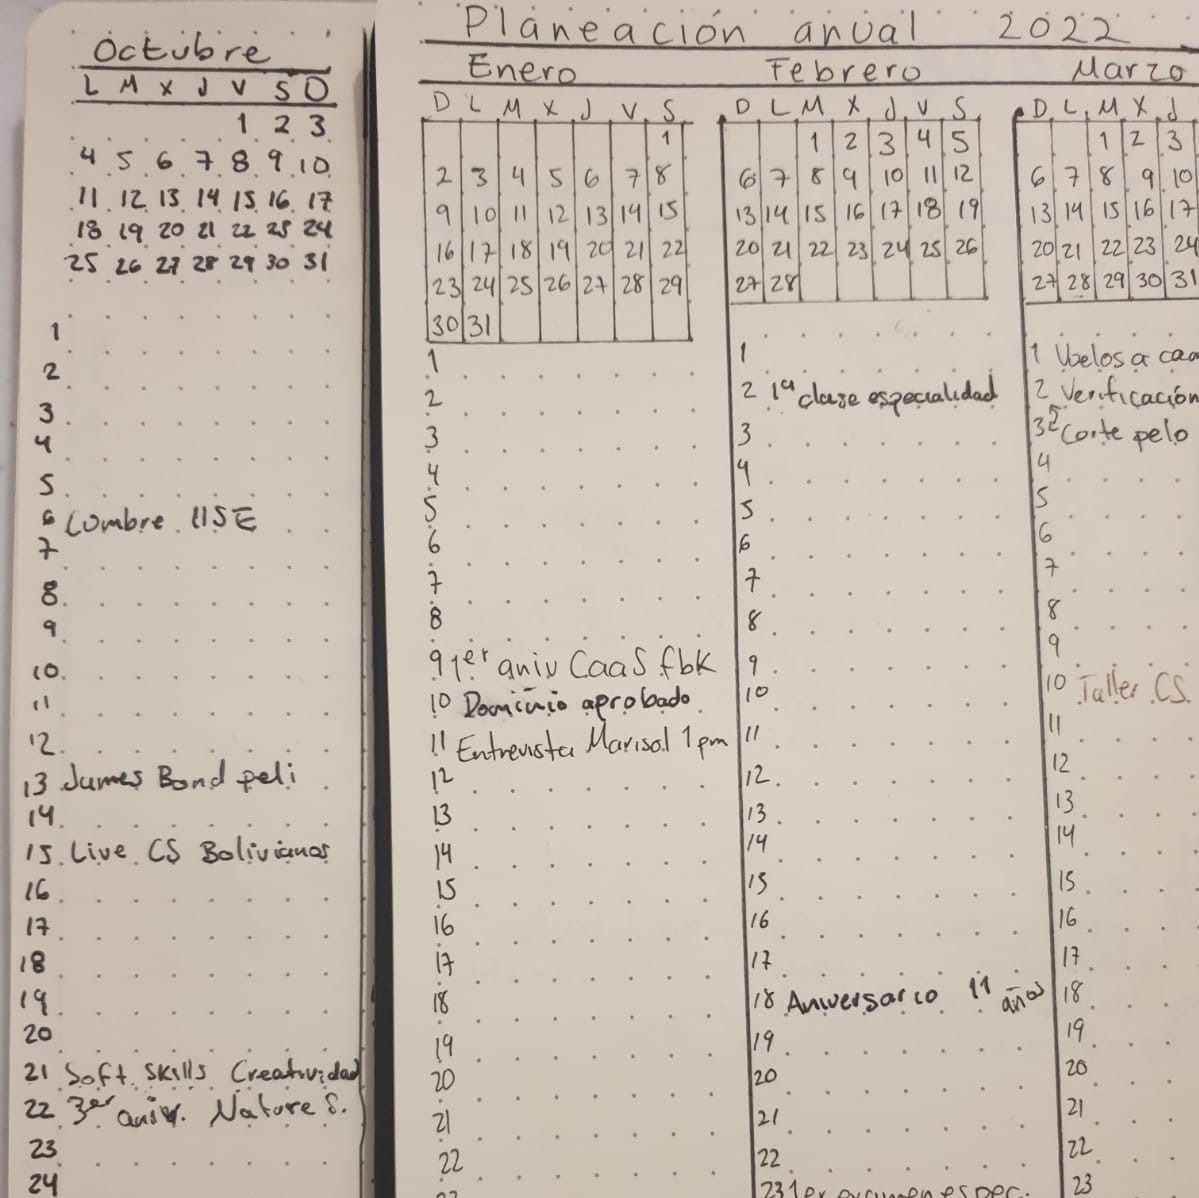 Octubre
L M X J V S D
1 2 3
4 5 6 7 8 9 10
11 12 13 14 15 16 17
18 19 20 21 22 25 24
25 26 27 28 29 30 31
1
2
3
4
5
6 Cumbre IISE
7
8
9
10
11
12
13 James Bond peli
14
15 Live CS Bolivianos
16
17
18
19
20
21 Soft skills Creatividad
22 3er aniv. Nature S.
23
24
Planeación anual 2022
Enero
D L M X J V S
1
2 3 4 5 6 7 8
9 10 11 12 13 14 15
16 17 18 19 20 21 22
23 24 25 26 27 28 29
30 31
1
2
3
4
5
6
7
8
9 1er aniv CaaS fbk
10 Dominio aprobado
11 Entrevista Marisol 1pm
12
13
14
15
16
17
18
19
20
21
22
Febrero
D L M X J V S
1 2 3 4 5
6 7 8 9 10 11 12
13 14 15 16 17 18 19
20 21 22 23 24 25 26
27 28
1
2 1ª clase especialidad
3
4
5
6
7
8
9
10
11
12
13
14
15
16
17
18 Aniversario 11 años
19
20
21
22
23 1er
Marzo
D L M X J
1 2 3
6 7 8 9 10
13 14 15 16 17
20 21 22 23 24
27 28 29 30 31
1 Vuelos a
2 Verificación
3 Corte pelo
4
5
6
7
8
9
10 Taller CS
11
12
13
14
15
16
17
18
19
20
21
22
23